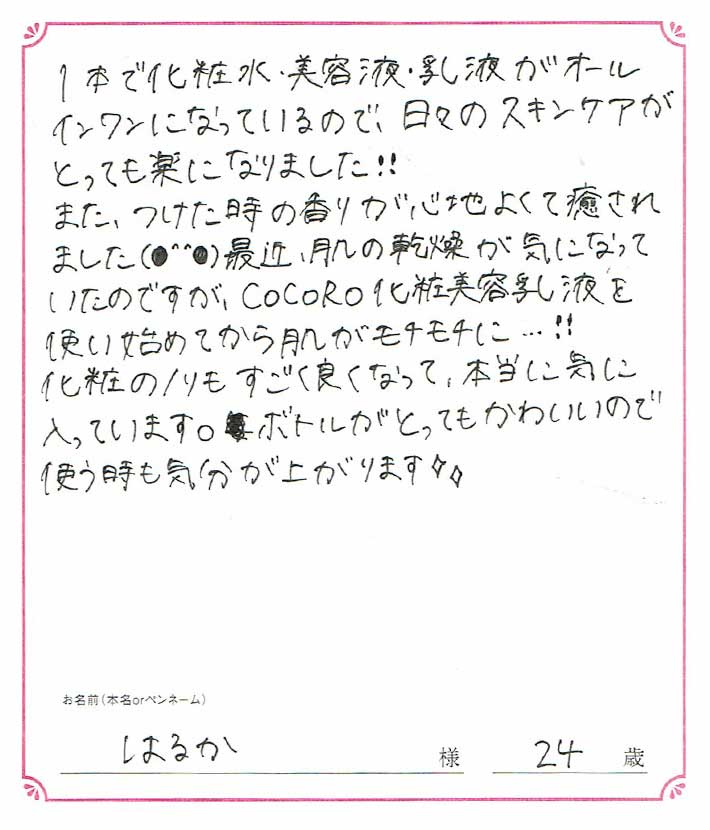 1本で化粧水・美容液・乳液がオール
インワンになっているので、日々のスキンケアが
とっても楽になりました!!
また、つけた時の香りが心地よくて癒され
ました(●^^●)最近、肌の乾燥が気になって
いたのですが、COCORO化粧美容乳液を
使い始めてから肌がモチモチに…!!
化粧のノリもすごく良くなって、本当に気に
入っています。ボトルがとってもかわいいので
使う時も気分が上がります
お名前(本名orペンネーム)
はるか 様 24 歳